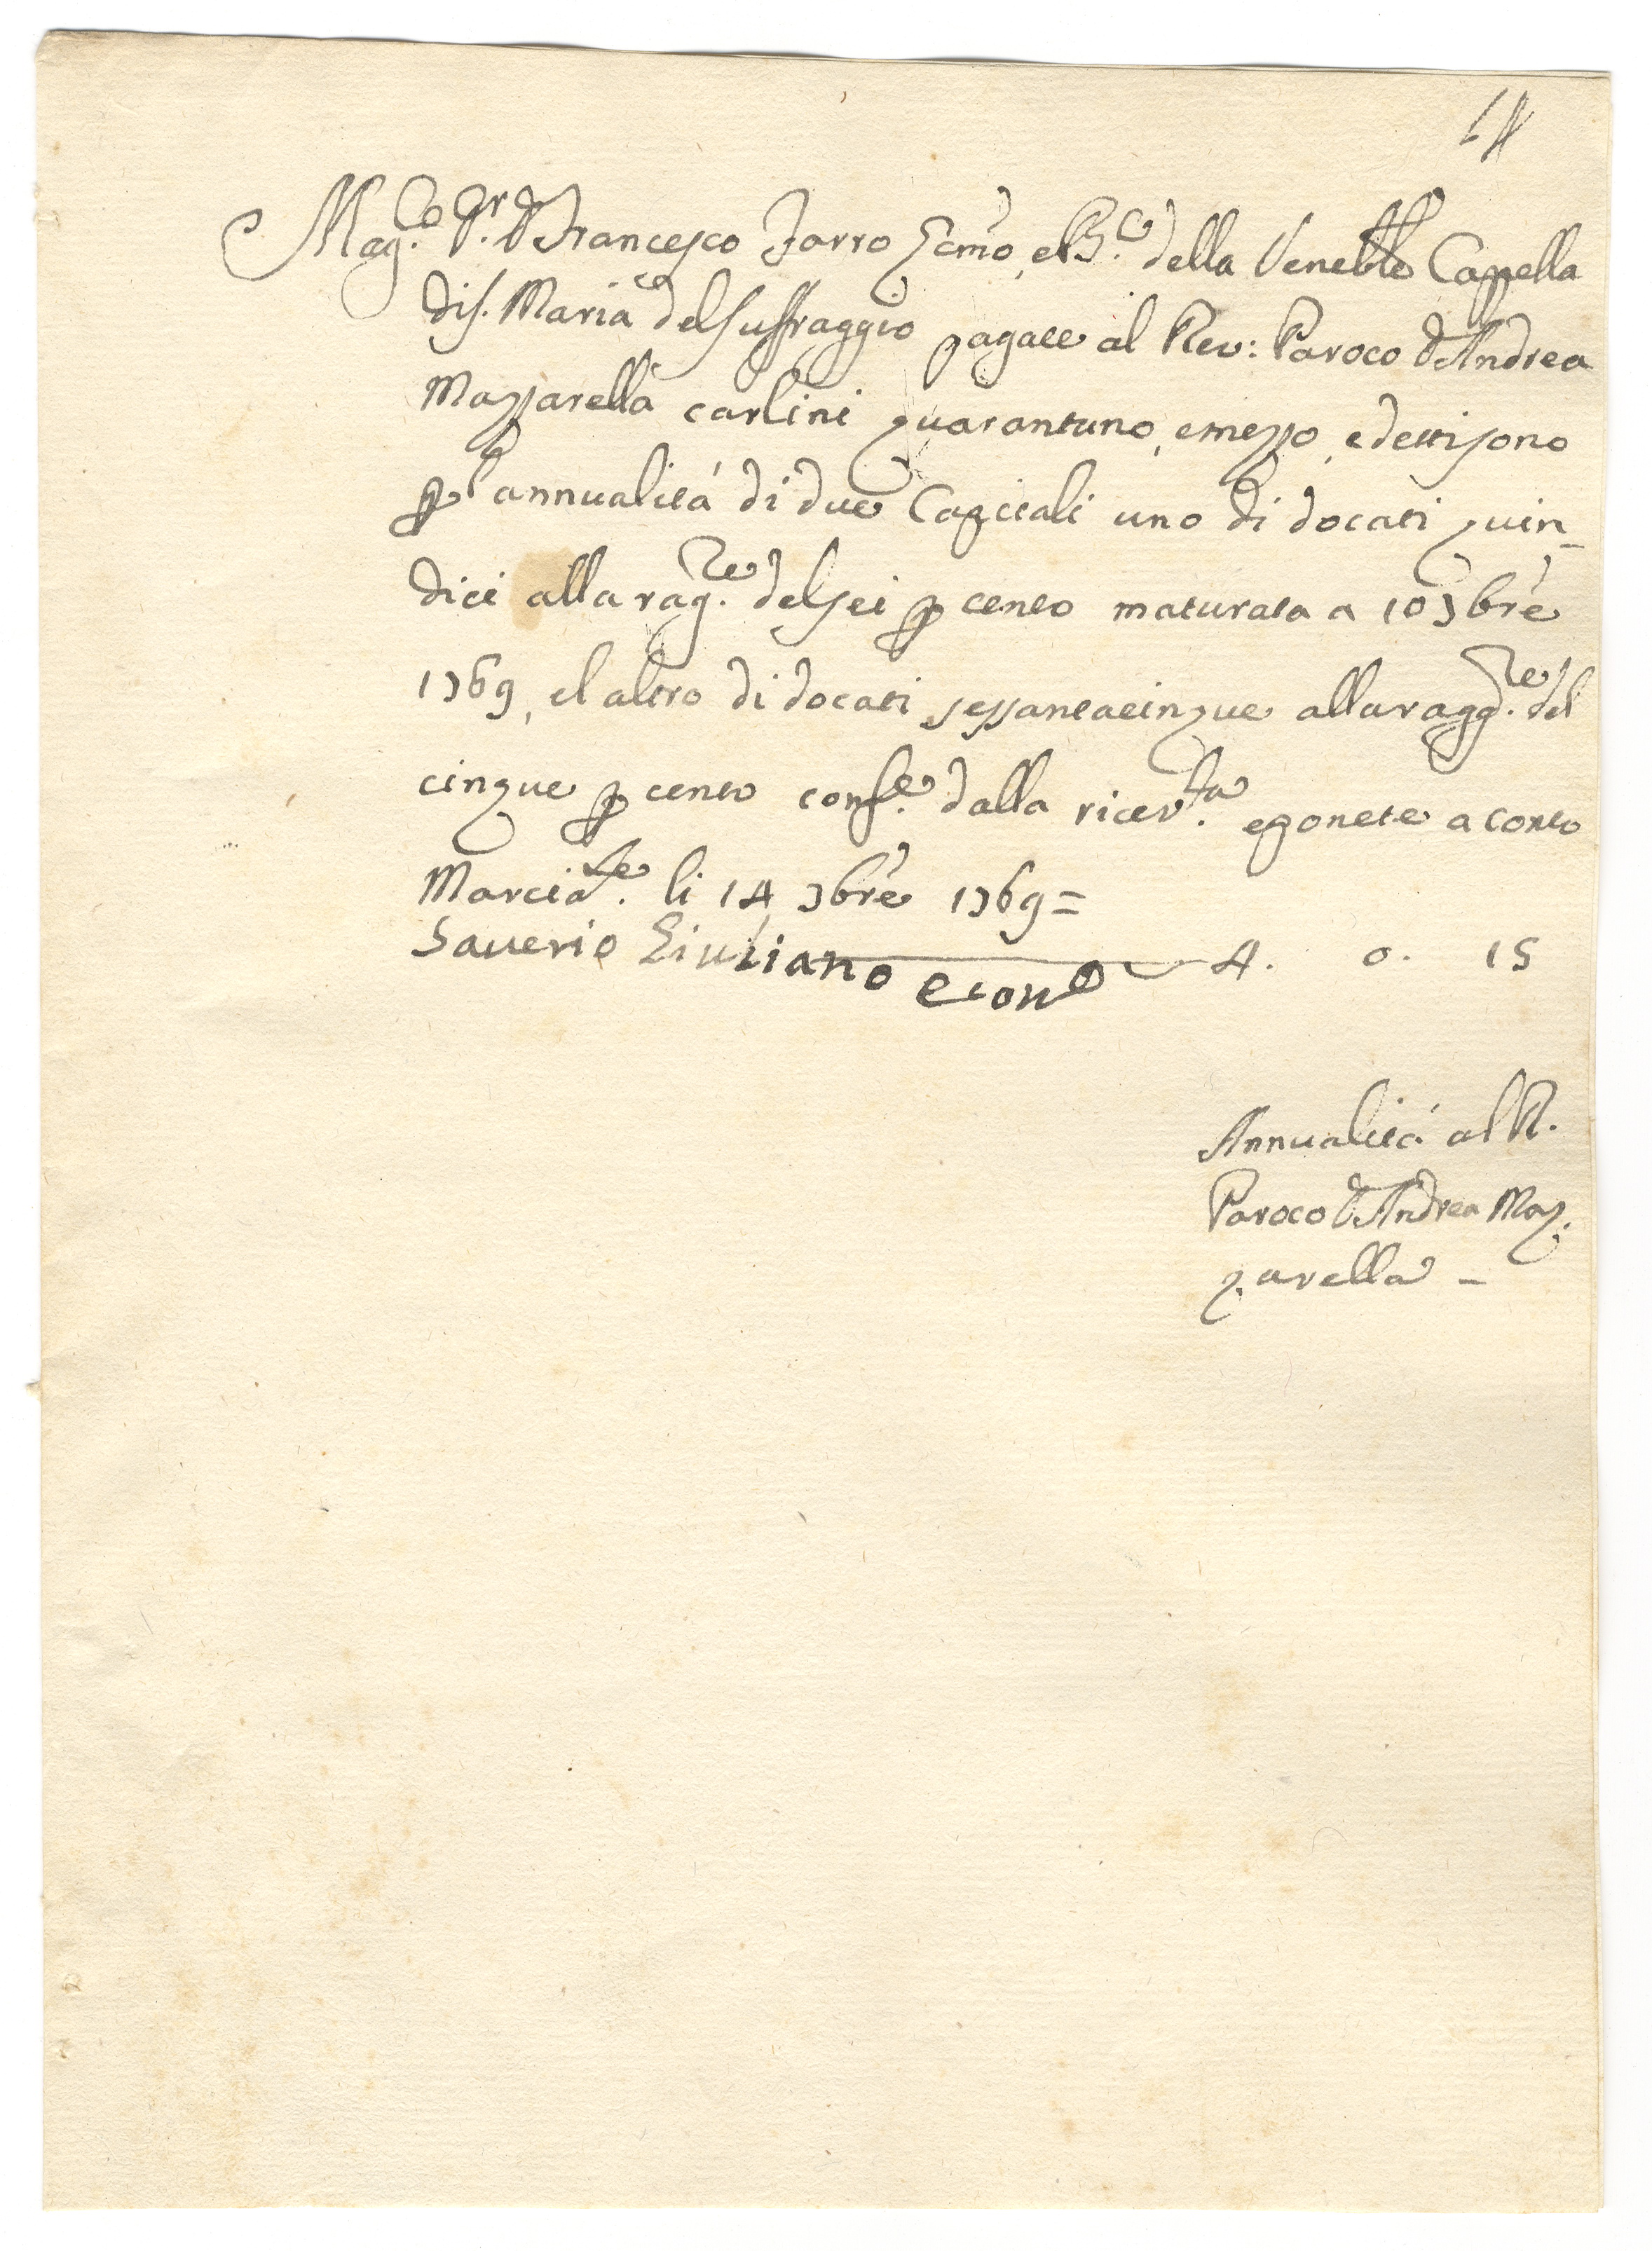 Mag.co Sr. D. Francesco Zarro Ecmo, e B.e della Veneble Cappella
di S. Maria del Suffraggio pagate al Rev: Paroco D. Andrea
Mazzarella carlini quarantuno, e mezzo, e detti sono
p l'annualitá di due Capitali uno di docati quin_
dici alla rag.ne del sei p cento maturata a 10 7bre
1769, el altro di docati sessantacinque alla ragg.ne del
cinque p cento conf.e dalla ricev.ta e ponete a conto
Marcia.se li 14 7bre 1769=
Saverio Giuliano Econo 4. 0. 15
Annualitá al R.
Paroco D. Andrea Maz.
zarella -